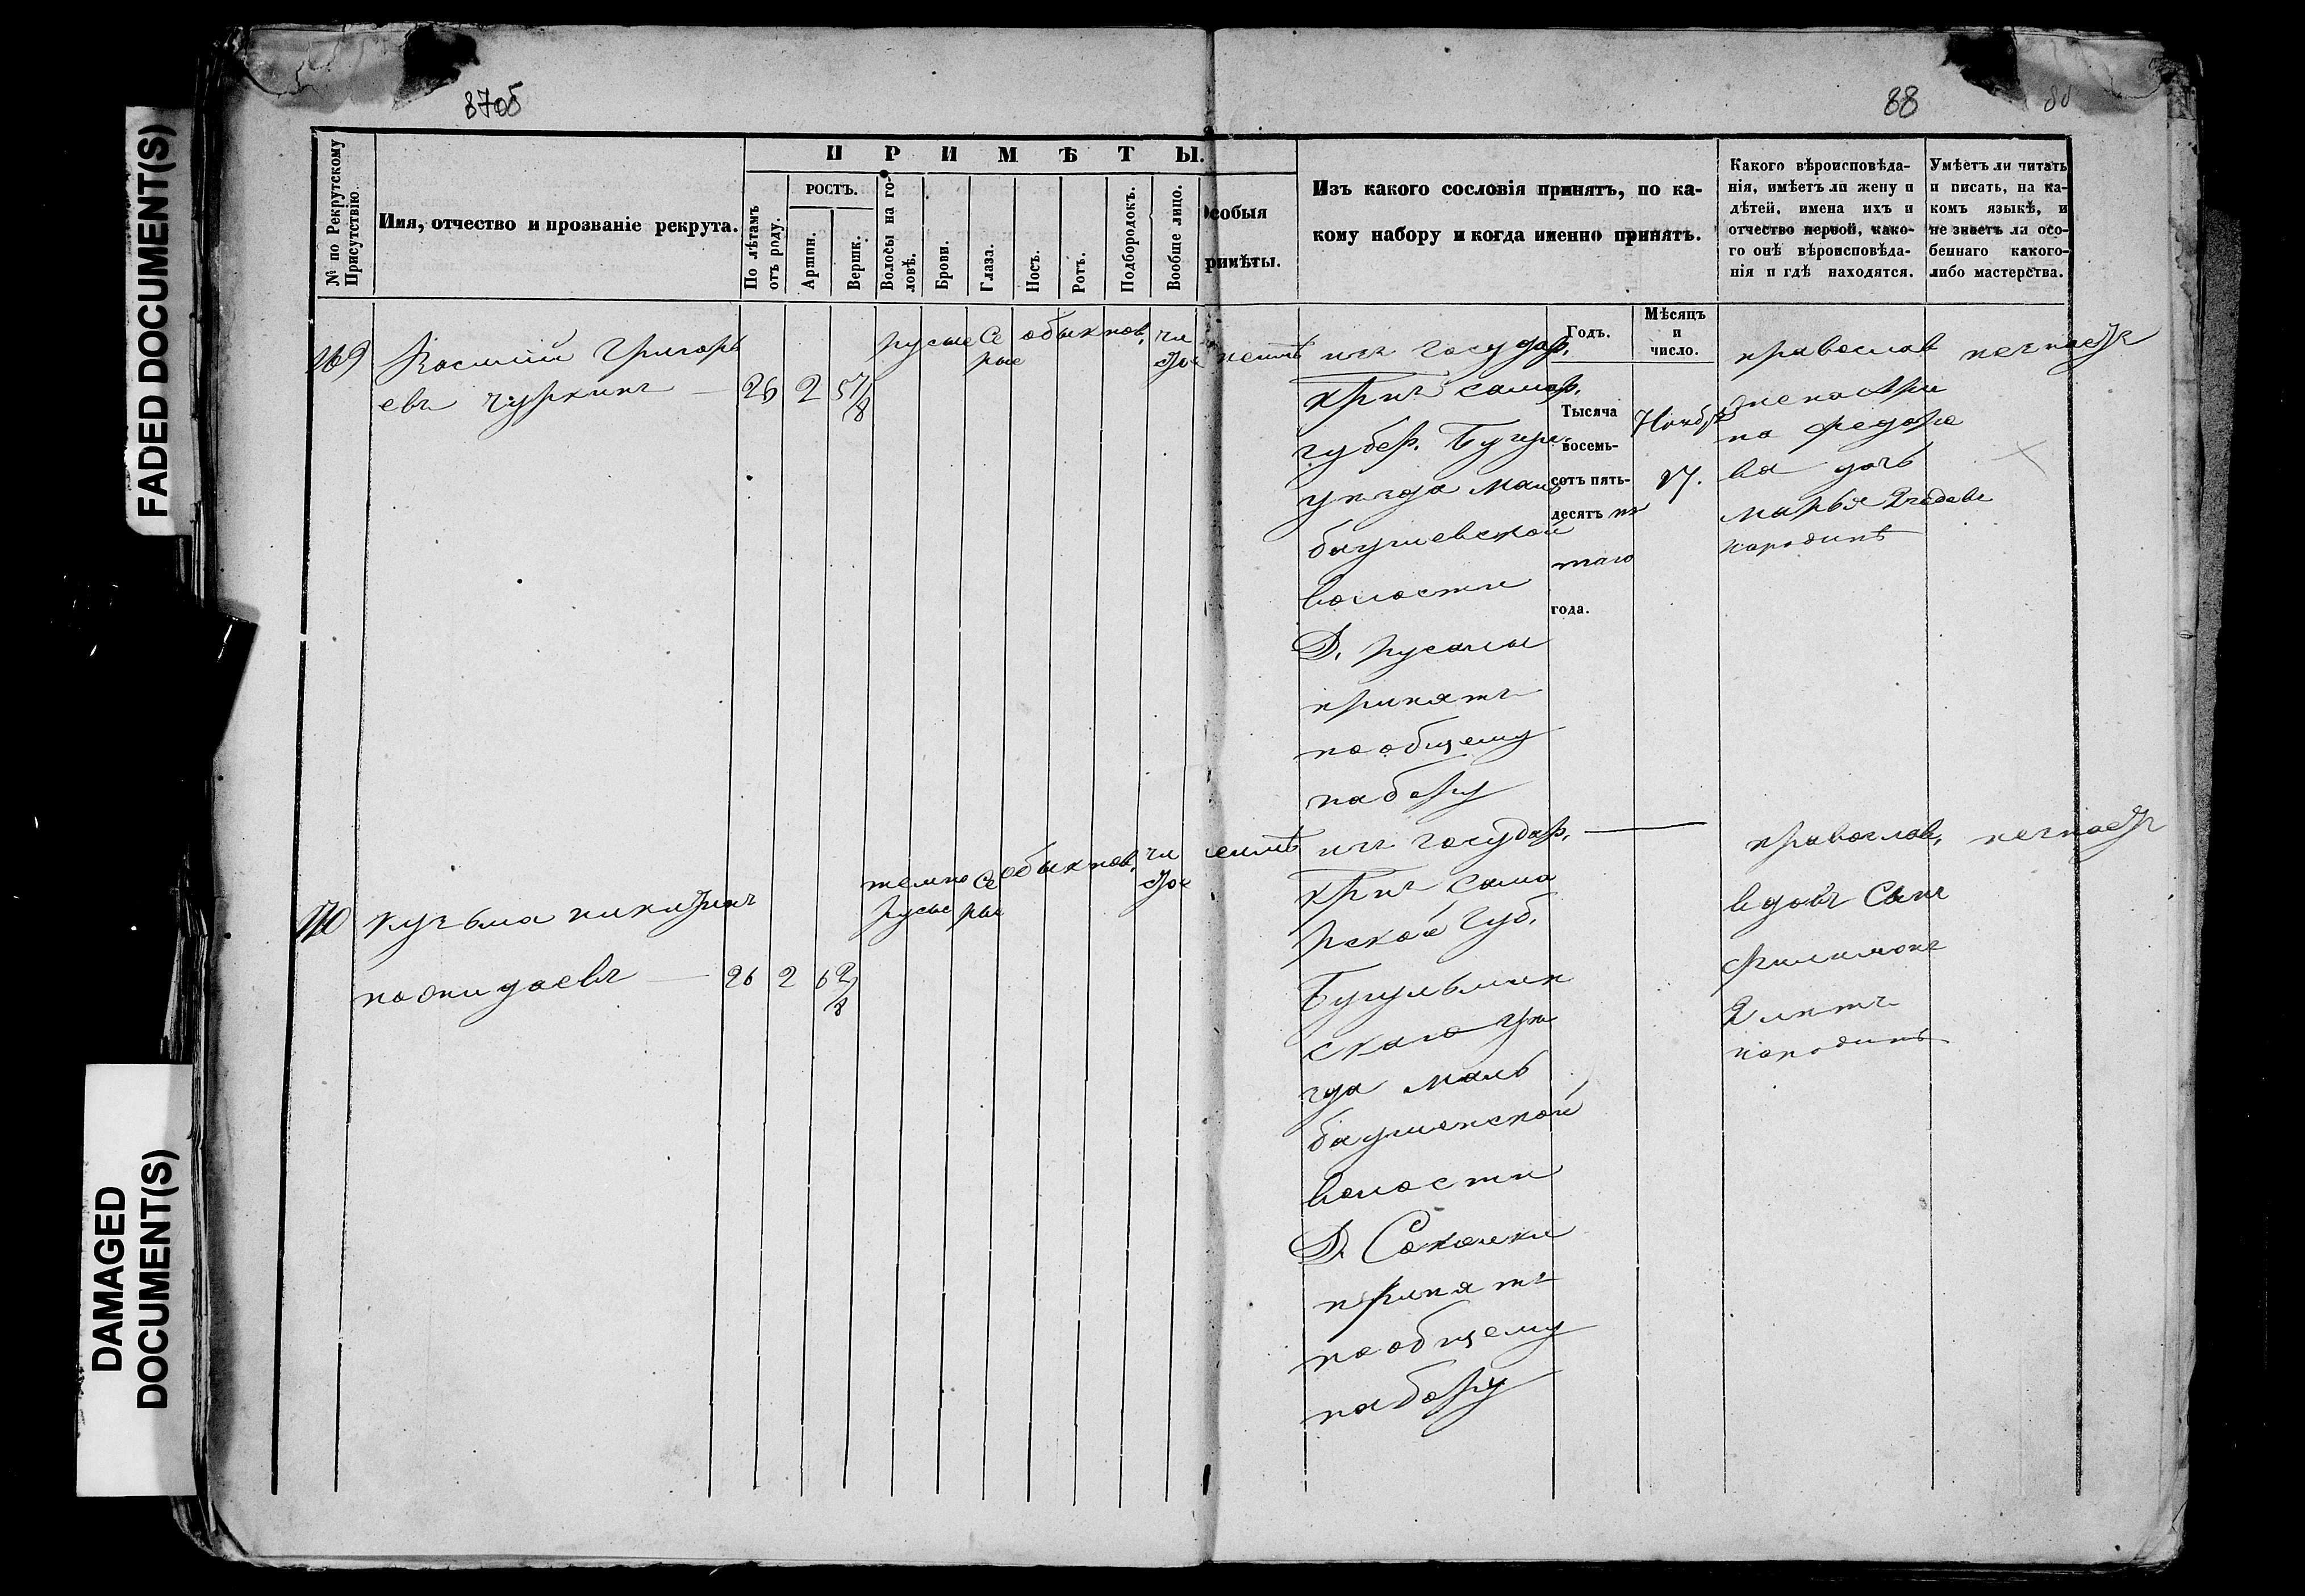 FADED DOCUMENT(S)
DAMAGED
DOCUMENT(S)
87об
88
№ по Рекрутскому
Присутствію
Имя, отчество и прозваніе рекрута.
ПРИМѢТЫ.
По лѣтамъ
отъ роду.
РОСТЪ.
Аршин.
Вершк.
Волосы на го-
ловѣ.
Брови.
Глаза.
Носъ.
Ротъ.
Подбородокъ.
Вообще лицо.
собыя
римѣты.
Изъ какого сословія принятъ, по ка-
кому набору и когда именно принятъ.
Какого вѣроисповѣда-
нія, имѣетъ ли жену и
дѣтей, имена ихъ и
отчество первой, како-
го онѣ вѣроисповѣда-
нія и гдѣ находятся.
Умѣетъ ли читать
и писать, на ка-
комъ языкѣ, и
не знаетъ ли осо-
беннаго какого-
либо мастерства.
169
Григорь
евъ Чуркинъ
26 2 5 7/8
русые
се
рые
обыкнов.
чи
стое
изъ государ.
крпъ самар.
губер. Бугул.
уѣзда Маль
багушевской
волости
Д.
принятъ
по общему
набору
Годъ.
Тысяча
восемь-
сотъ пять-
десятъ пя
таго
года.
Мѣсяцъ
и
число.
Ноябр
православ
жена Ари
на Федоро
ва дочь
Марья 2 годовъ
народинѣ
незнаетъ
170
кузьма никитинъ
26 2 6 2/8
темно
русые
се
рые
обыкнов.
чи
стое
изъ государ.
крпъ Сама
рской губ.
Бугульмин
скаго уѣ
зда Маль
багушенской
волости
принятъ
по общему
набору
православ.
вдовъ Сынъ
филимонъ
2 лѣтъ
народинѣ
незнаетъ